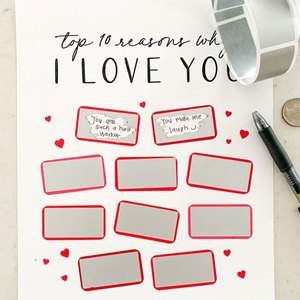 top 10 reasons why
I LOVE YOU
You are
such a hard
worker
You make me
laugh